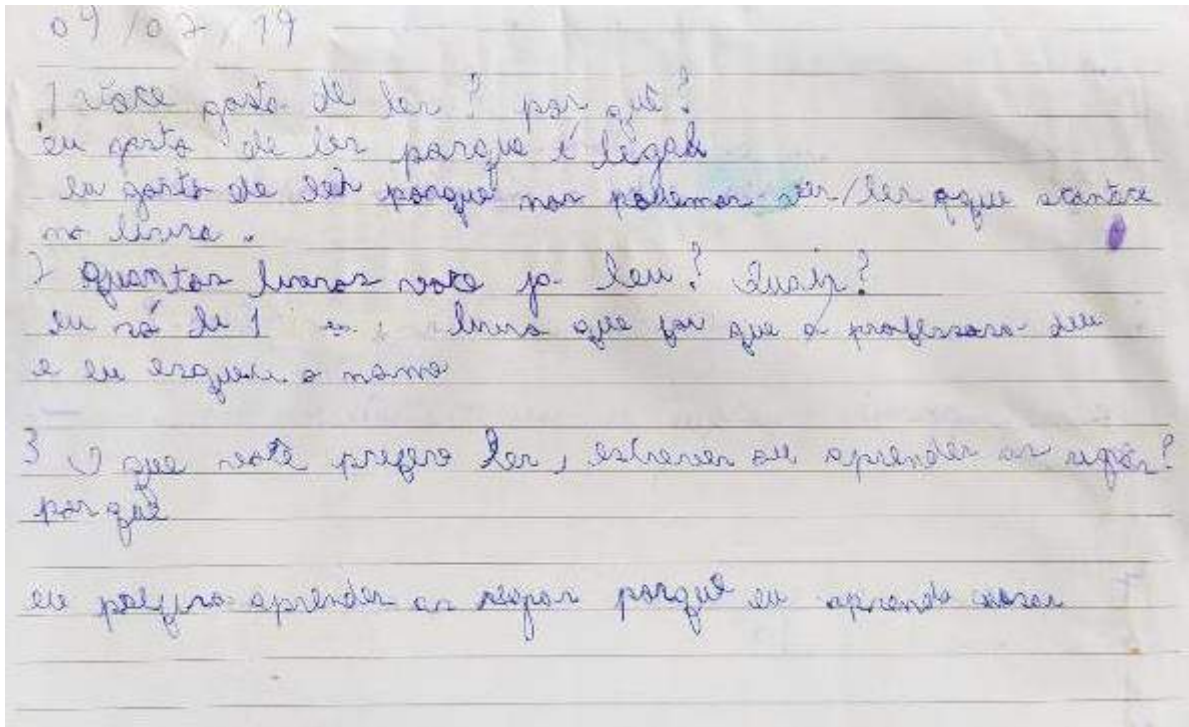 09/07/19
1 você gosta de ler? por quê?
eu gosto de ler porque é legal
eu gosto de ler porque nos podemos ver/ler oque acontece
no livro.
2 quantos livros você ja leu? Quais?
eu só li 1 livro que foi que a professora deu
e eu esqueci o nome
3 O que você prefere ler, escrever ou aprender as regras?
por quê
eu prefiro aprender as regras porquê eu aprendo